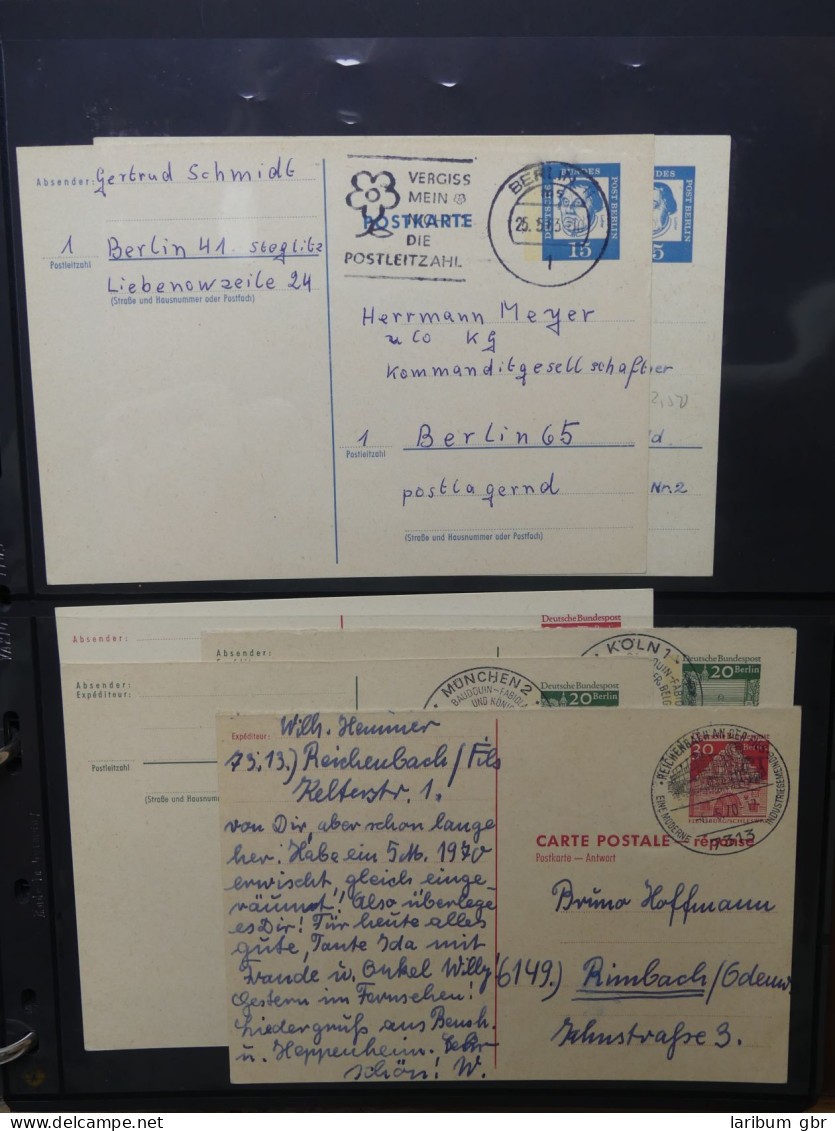 Absender: Gertrud Schmidt
1 Berlin 41. Steglitz
Postleitzahl
Liebenowzeile 24
(Straße und Hausnummer oder Postfach)
VERGISS
MEIN
NICHT
DIE
POSTLEITZAHL
POSTKARTE
BERLIN
1
15
POST BERLIN
5
POST BERLIN
Herrmann Meyer
u Co KG
Kommanditgesellschafter
1 Berlin 65
Postleitzahl
postlagernd
(Straße und Hausnummer oder Postfach)
ld.
Nr. 2
Absender:
Deutsche Bundespost
Absender:
KÖLN 1
Deutsche Bundespost
20 Berlin
Absender:
Expéditeur:
MÜNCHEN 2
BAUDOUIN-FABIOLA
Deutsche Bundespost
20 Berlin
Postleitzahl
(Straße und
Expéditeur: Wilh. Hemmer
7313.) Reichenbach/Fils
Kelterstr. 1.
von Dir, aber schon lange
her. Habe ein 5 M. 1970
erwischt, gleich einge-
räumt! Also überlege
es Dir! Für heute alles
gute, Tante Ida mit
u. Onkel Willy!
Gestern im Fernsehen!
Liedergruß aus Bensh.
u. Heppenheim. Sehr
schön! W.
30
Berlin
REICHENBACH AN DER FILS
EINE MODERNE INDUSTRIEGEMEINDE
7313
CARTE POSTALE — réponse
Postkarte — Antwort
Bruno Hoffmann
6149.) Rimbach/Odenw.
Jahnstraße 3.
laribum gbr